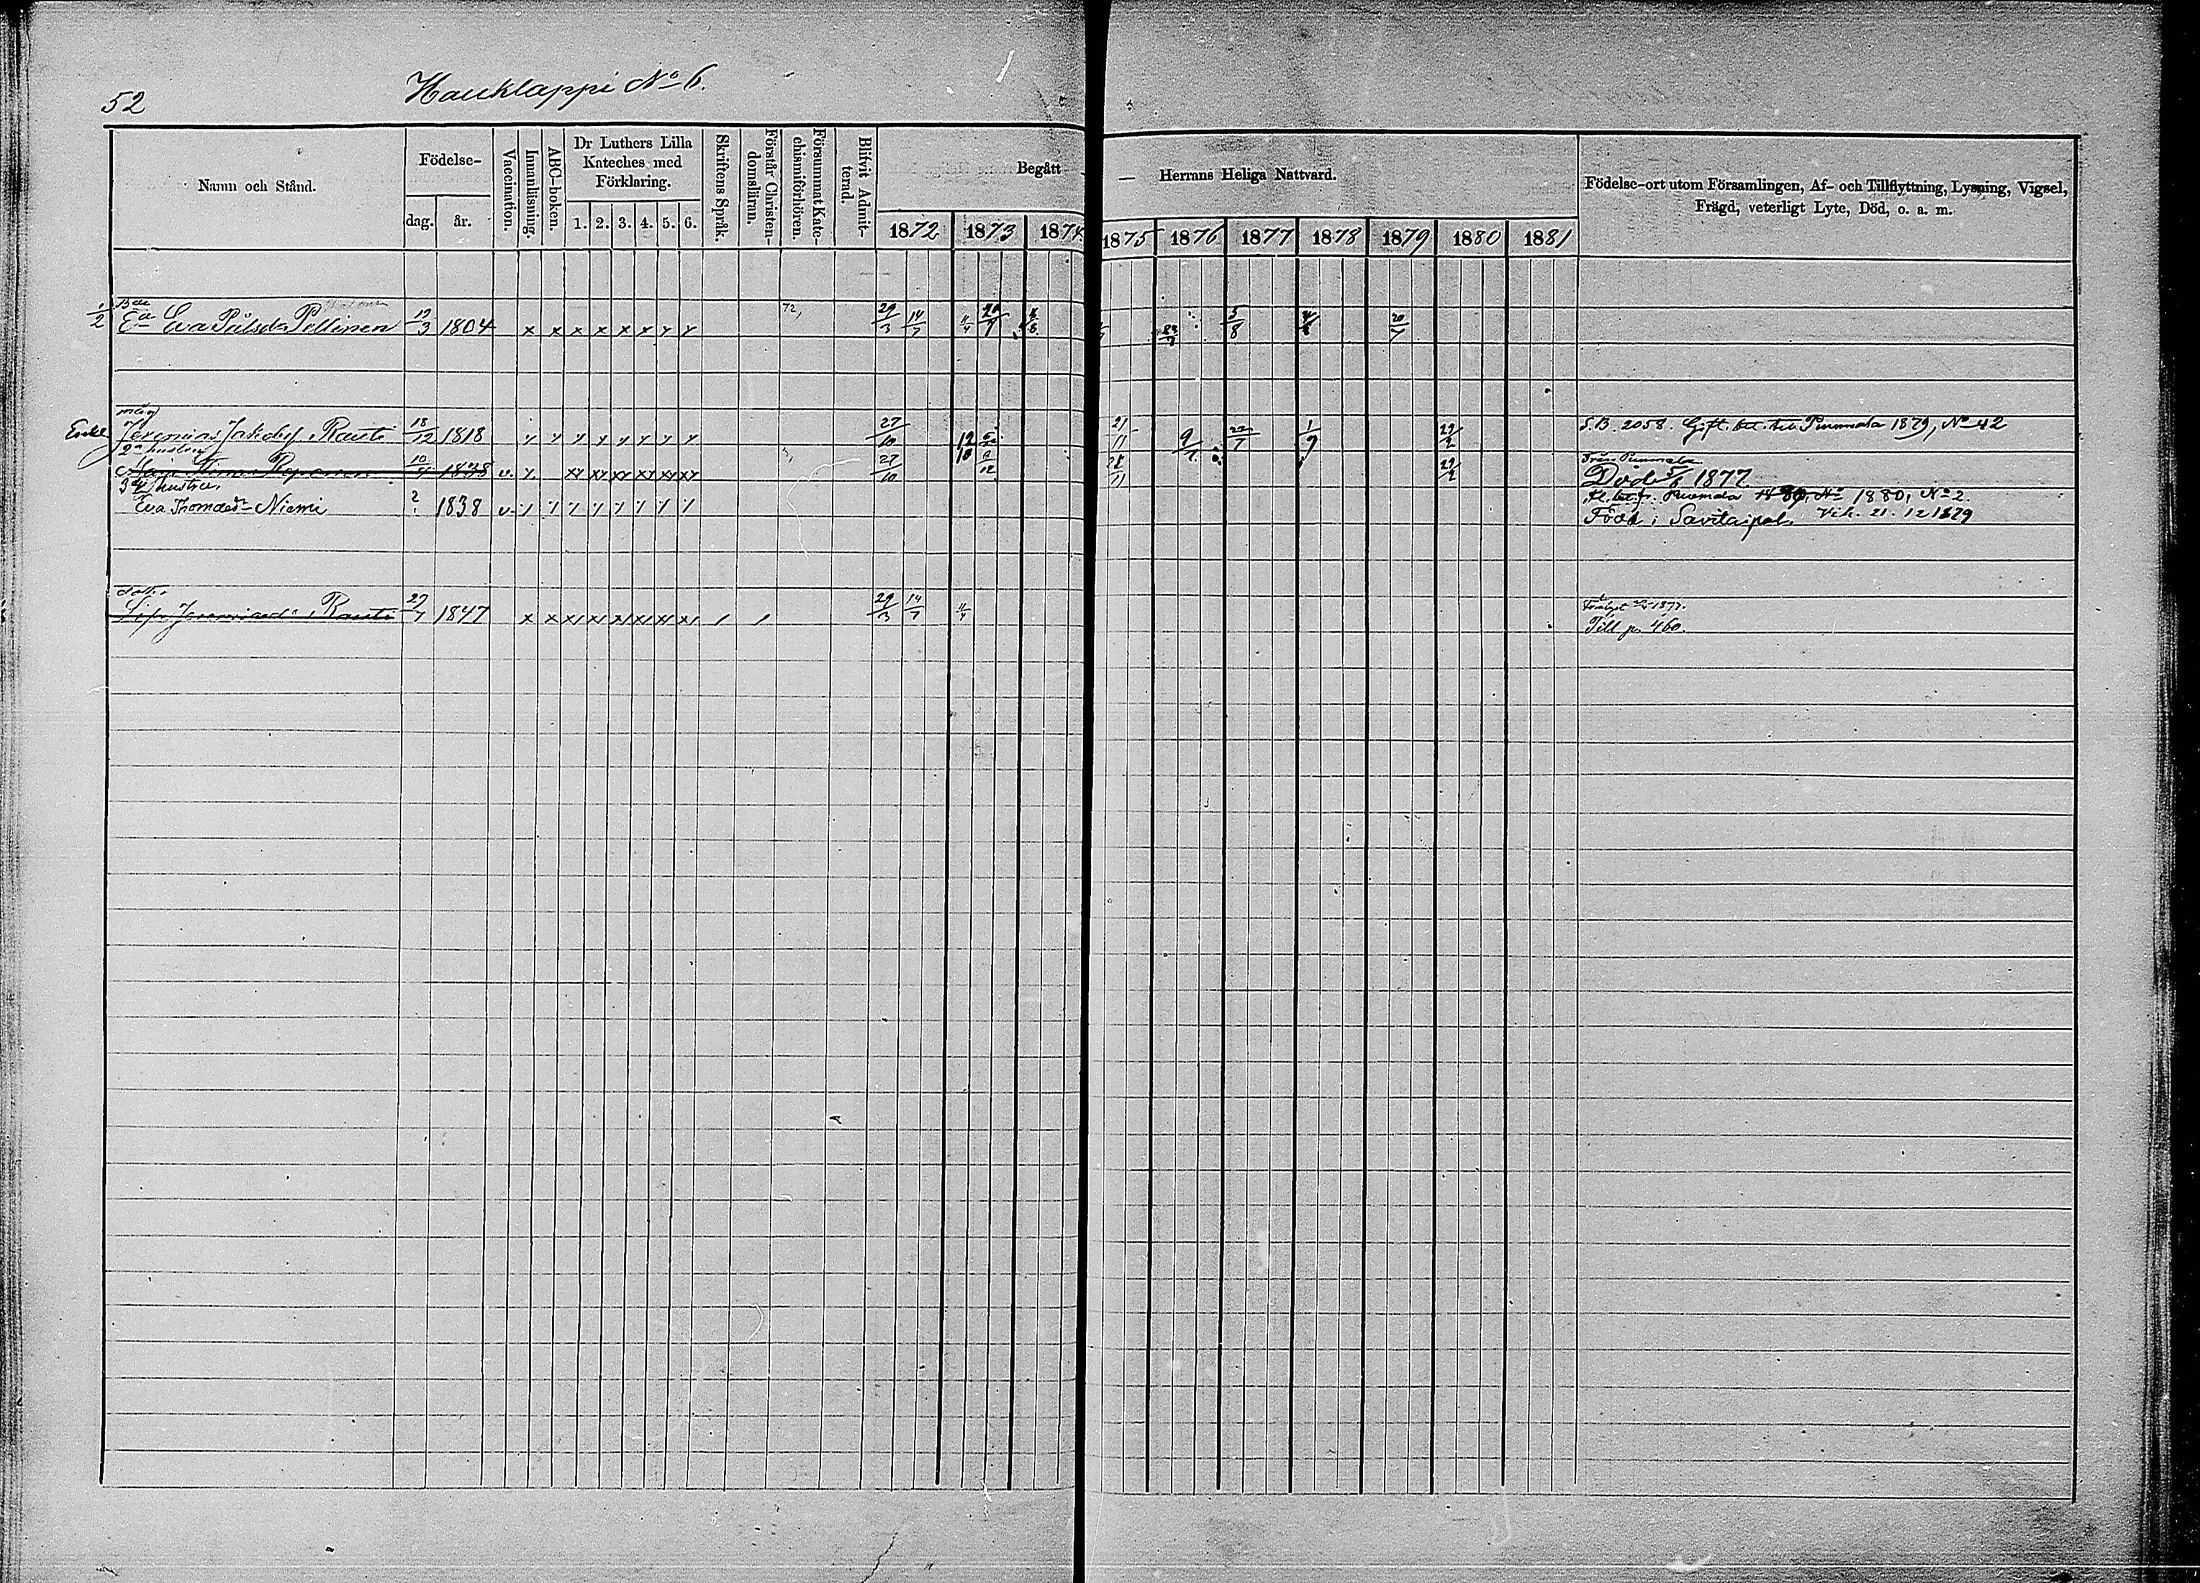 52
Hauklappi No 6.
Namn och Stånd.
Födelse-
dag.
år.
Vaccination.
Innanläsning.
ABC-boken.
Dr Luthers Lilla
Kateches med
Förklaring.
1. 2. 3. 4. 5. 6.
Skriftens Språk.
Förstår Christen-
domsläran.
Försummat Kate-
chismiförhören.
Blifvit Admit-
terad.
Begått — Herrans Heliga Nattvard.
1872 1873 1874 1875 1876 1877 1878 1879 1880 1881
Födelse-ort utom Församlingen, Af- och Tillflyttning, Lysning, Vigsel,
Frägd, veterligt Lyte, Död, o. a. m.
1/2 Eva Pålsdr Pellinen 19/3 1804 x x x x x x x x 72, 29/3 14/7 11/4 5/8 20/7
måg
Enkl. Jeremias Jakobsf Rauti 18/12 1818 27/10 21/11 9/7 22/7 1/9 29/2 S.B. 2058. Gift. bet. till Puumala 1879, No 42
2a hustru
Maja Reponen 10/4 1838 v. 27/10 28/11 29/2 Från Puumala
Död 1877
3dj hustru
Eva Thomasdr Niemi ? 1838 v. Puumala 1880, No 2.
Född i Savitaipal. Vih. 21. 12 1879
dottr
Jeremiasdr Rauti 27/7 1847 29/3 14/7 11/4 1877.
Till p. 460.